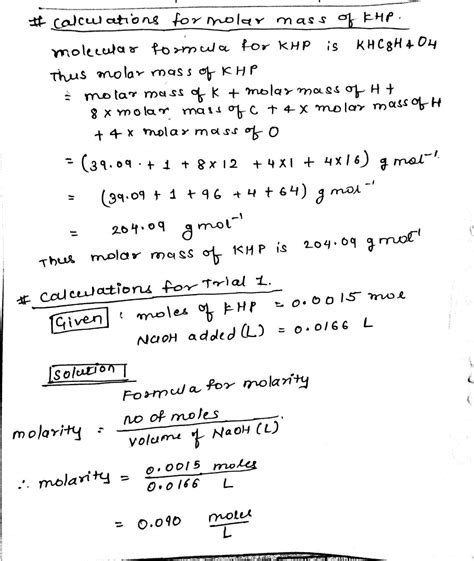 # calculations for molar mass of KHP.
molecular formula for KHP is KHC8H4O4
Thus molar mass of KHP
= molar mass of K + molar mass of H +
8 x molar mass of C + 4 x molar mass of H
+ 4 x molar mass of O
= (39.09 + 1 + 8x12 + 4x1 + 4x16) g mol⁻¹
= (39.09 + 1 + 96 + 4 + 64) g mol⁻¹
= 204.09 g mol⁻¹
Thus molar mass of KHP is 204.09 g mol⁻¹
# calculations for Trial 1.
Given : moles of KHP = 0.0015 mole
NaOH added (L) = 0.0166 L
Solution
Formula for molarity
molarity = no of moles
volume of NaOH (L).
∴ molarity = 0.0015 moles
0.0166 L
= 0.090 moles
L